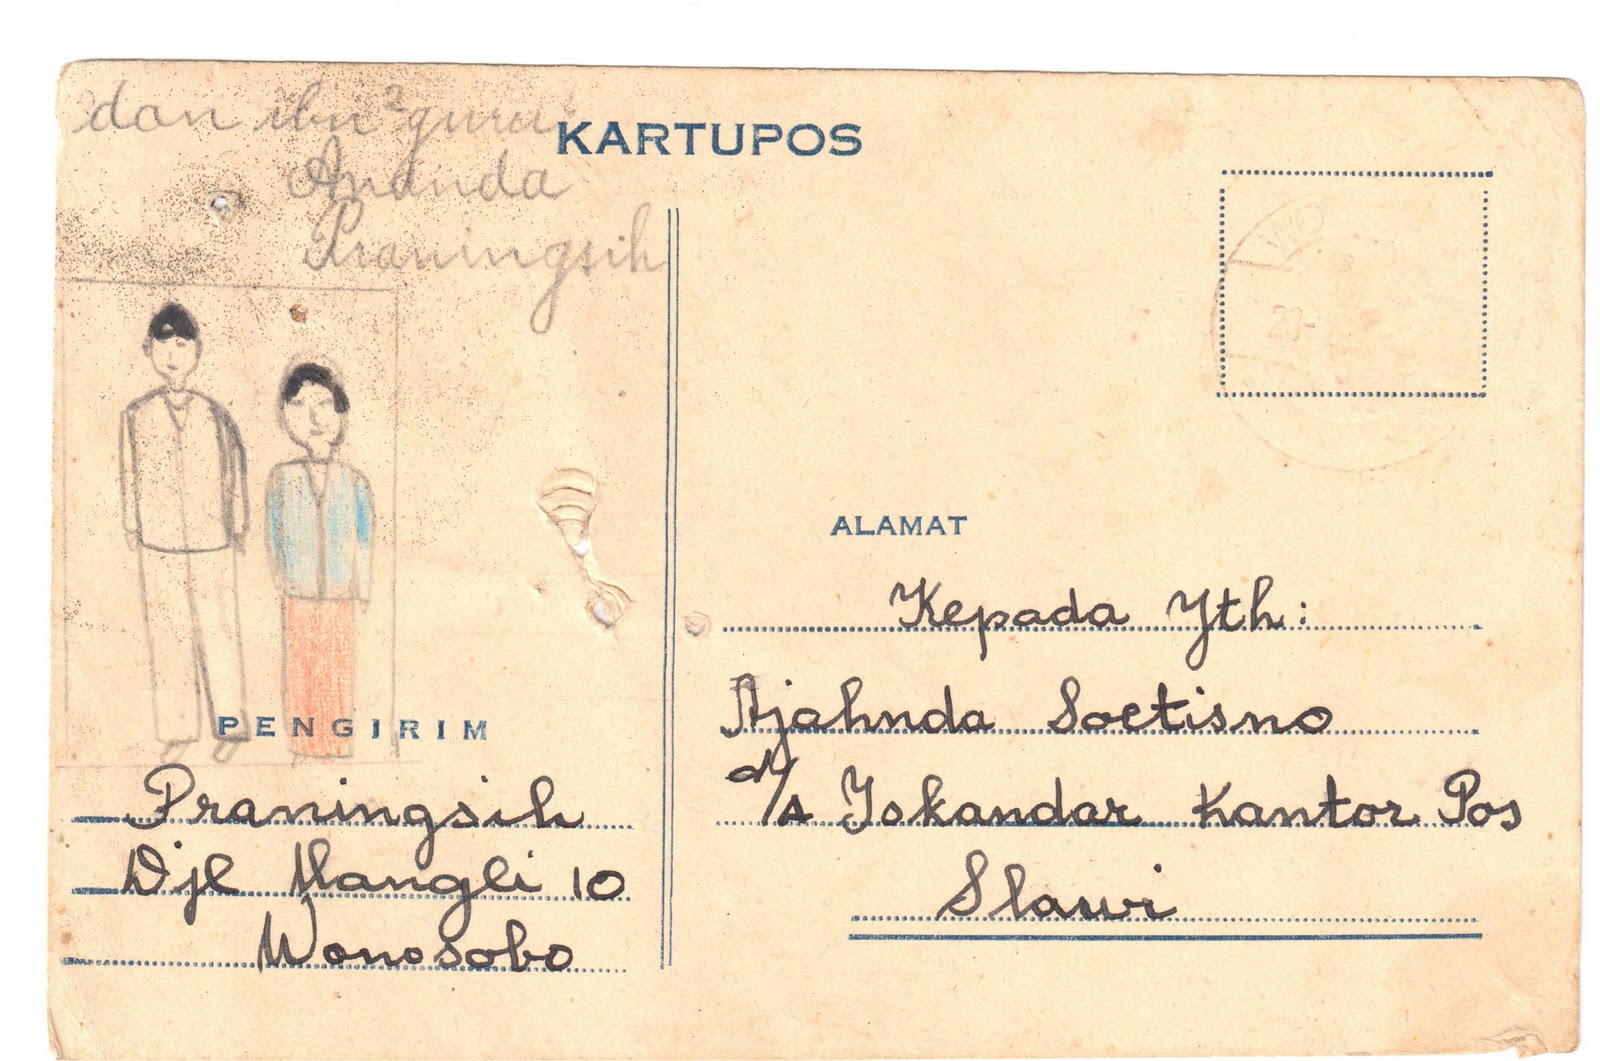 dan ibu² guru
Ananda
Praningsih
KARTUPOS
WO
ALAMAT
Kepada Yth:
Ajahnda Soetisno
d/A Iskandar Kantor Pos
Slawi
PENGIRIM
Praningsih
Djl Mangli 10
Wonosobo